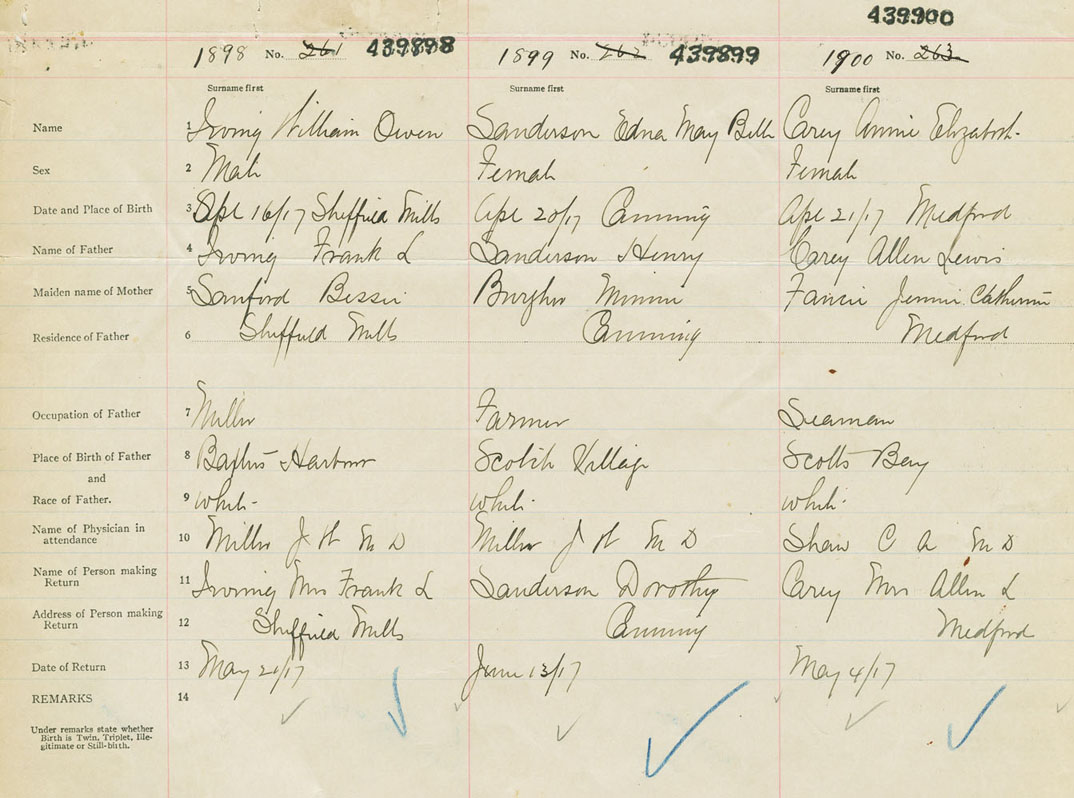 439900
1898 No. 261 439898 1899 No. 262 439899 1900 No. 263
Surname first Surname first Surname first
Name 1 Irving William Owen Sanderson Edna May Carey Annie Elizabeth
Sex 2 Male Female Female
Date and Place of Birth 3 Apl 16/17 Sheffield Mills Apl 20/17 Canning Apl 21/17 Medford
Name of Father 4 Irving Frank L Sanderson Henry Carey Allen Lewis
Maiden name of Mother 5 Sanford Bessie Minnie Jennie Catherine
Residence of Father 6 Sheffield Mills Canning Medford
Occupation of Father 7 Miller Farmer Seaman
Place of Birth of Father 8 Harbour Scotch Village Scotts Bay
and
Race of Father. 9 white white white
Name of Physician in attendance 10 Miller J W M D Miller J W M D Shaw C A M D
Name of Person making Return 11 Irving Mrs Frank L Sanderson Dorothy Carey Mrs Allen L
Address of Person making Return 12 Sheffield Mills Canning Medford
Date of Return 13 May 21/17 June 13/17 May 4/17
REMARKS 14
Under remarks state whether
Birth is Twin, Triplet, Ille-
gitimate or Still-birth.